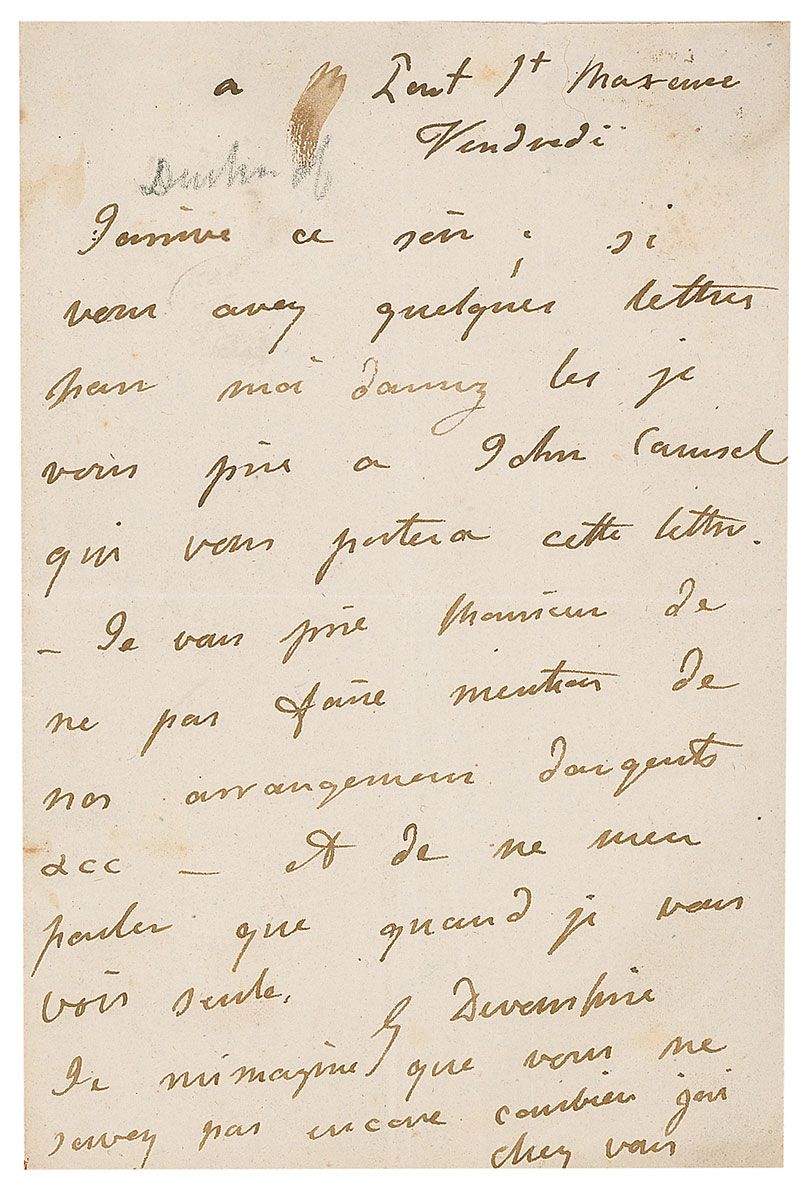 a Pont St Maxence
Vendredi
Duchss of
J'arrive ce soir; si
vous avez quelques lettres
pour moi donnez les je
vous prie a John
qui vous portera cette lettre.
- Je vous prie Monsieur de
ne pas faire mention de
nos arrangemens d'argents
&cc — et de ne m'en
parler que quand je vous
vois seule.
G Devonshire
Je m'imagine que vous ne
savez pas encore combien j'ai
chez vous